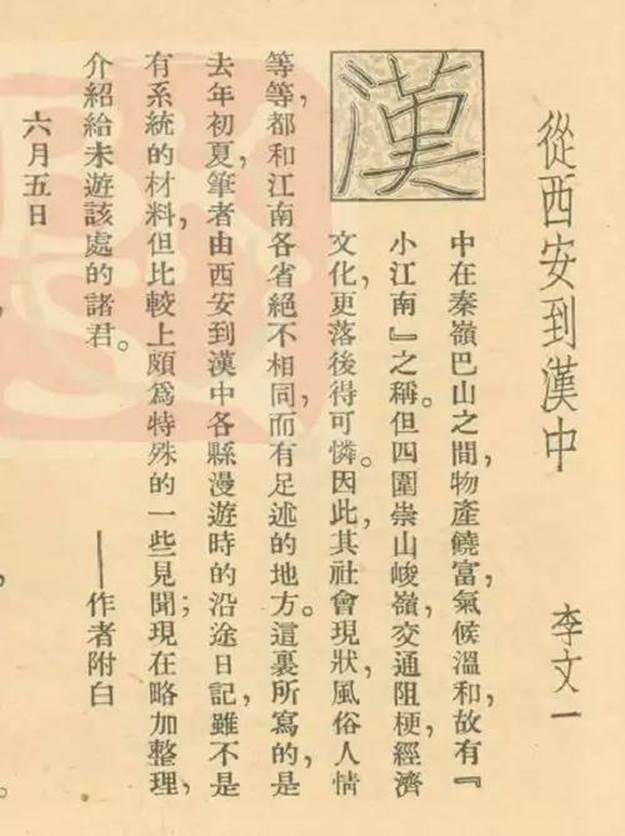 從西安到漢中
李文一
漢
中在秦嶺巴山之間，物產饒富，氣候溫和，故有『
小江南』之稱。但四圍崇山峻嶺，交通阻梗，經濟
文化，更落後得可憐。因此，其社會現狀，風俗人情
等等，都和江南各省絕不相同，而有足述的地方。這裏所寫的，是
去年初夏，筆者由西安到漢中各縣漫遊時的沿途日記，雖不是
有系統的材料，但比較上頗爲特殊的一些見聞；現在略加整理，
介紹給未遊該處的諸君。——作者附白
六月五日